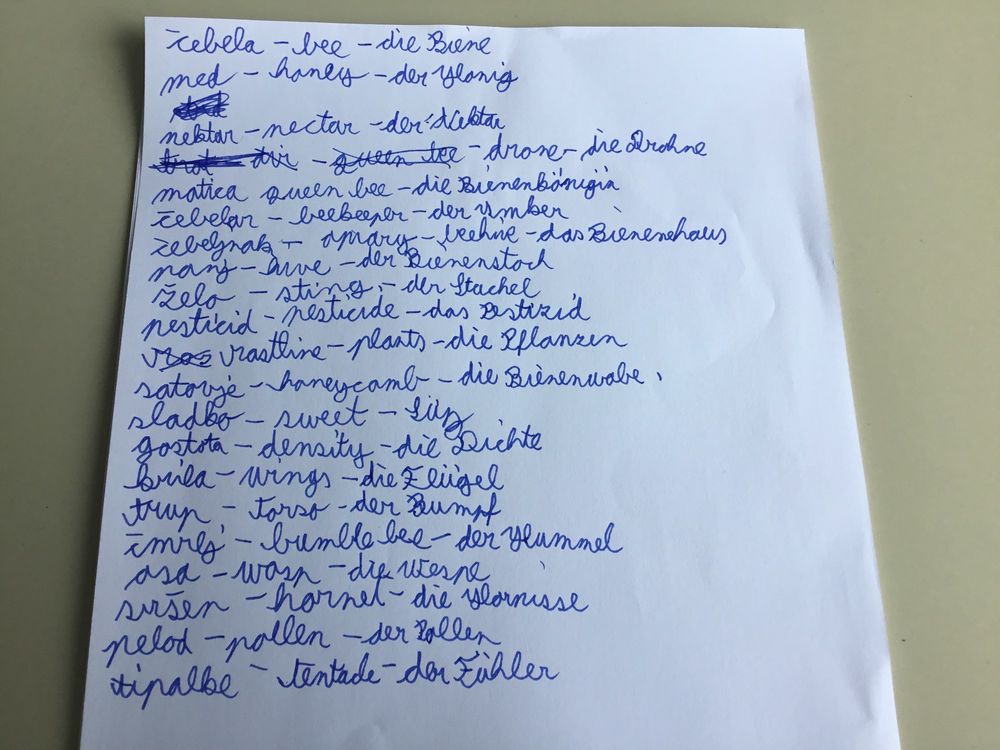 čebela - bee - die Biene
med - honey - der Honig
nektar - nectar - der Nektar
trot - queen bee - drone - die Drohne
matica queen bee - die Bienenkönigin
čebelar - beekeeper - der Imker
čebelnjak - apiary - beehive - das Bienenehaus
panj - hive - der Bienenstock
želo - sting - der Stachel
pesticid - pesticide - das Pestizid
vrastline - plants - die Pflanzen
satovje - honeycamb - die Bienenwabe
sladko - sweet - süß
gostota - density - die Dichte
krila - wings - die Flügel
trup - torso - der Rumpf
čmrlj - bumble bee - der Hummel
osa - wasp - die Wespe
sršen - hornet - die Hornisse
pelod - pollen - der Pollen
tipalke - tentacle - der Fühler